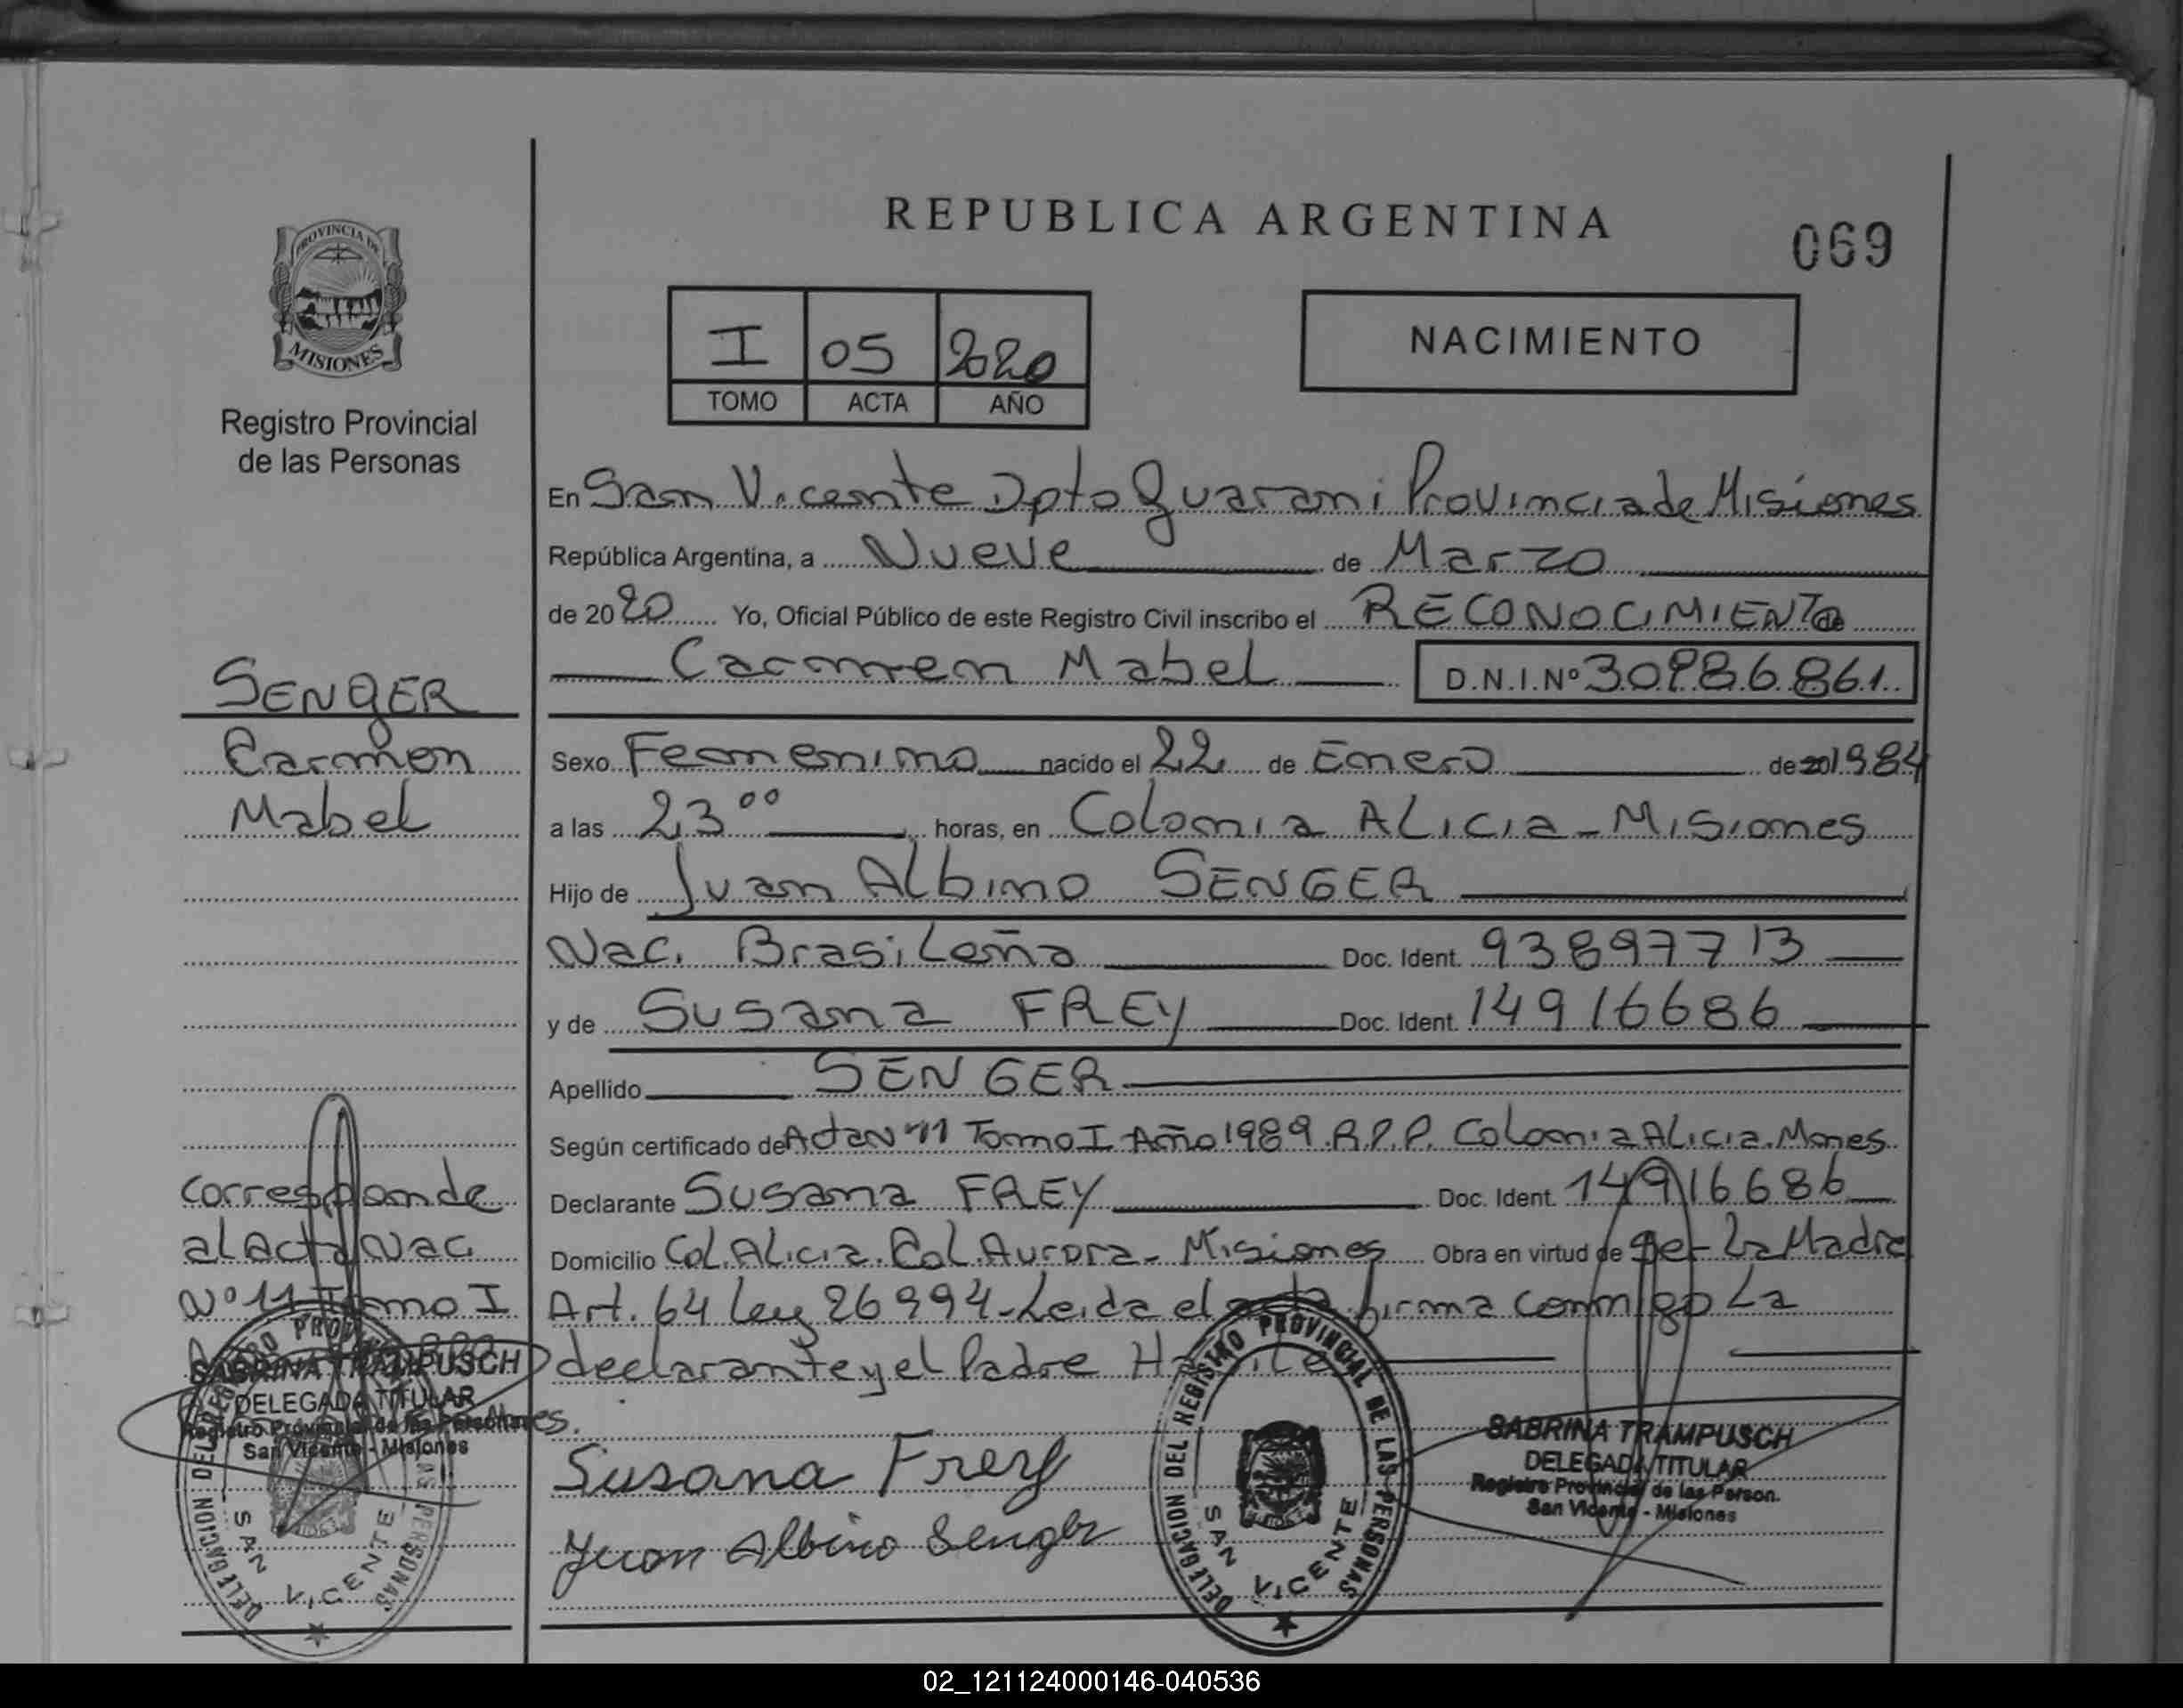 REPUBLICA ARGENTINA
069
PROVINCIA DE
MISIONES
Registro Provincial
de las Personas
I 05 2020
TOMO ACTA AÑO
NACIMIENTO
En San Vicente Dpto Guarani Provincia de Misiones
República Argentina, a Nueve de Marzo
de 2020 Yo, Oficial Público de este Registro Civil inscribo el RECONOCIMIENTO de
Carmen Mabel D.N.I.Nº 30986861
SENGER
Carmen
Mabel
Sexo Femenino nacido el 22 de Enero de 20 1984
a las 23 00 horas, en Colonia ALicia - Misiones
Hijo de Juan Albino SENGER
Nac. Brasileña Doc. Ident. 93897713
y de Susana FREY Doc. Ident. 14916686
Apellido SENGER
Según certificado de Acta Nº 11 Tomo I Año 1989 R.P.P. Colonia Alicia. Mones.
Declarante Susana FREY Doc. Ident. 14916686
Domicilio Col. Alicia. Col. Aurora - Misiones Obra en virtud de Ser La Madre
Art. 64 Ley 26994 - Leida el acta firma conmigo La
declarante y el Padre
Corresponde
al Acta Nac.
Nº 11 Tomo I
SABRINA TRAMPUSCH
DELEGADA TITULAR
Registro Provincial de las Personas
San Vicente - Misiones
DELEGACION DEL REGISTRO PROVINCIAL DE LAS PERSONAS
SAN VICENTE
Susana Frey
Juan Albino Senger
DELEGACION DEL REGISTRO PROVINCIAL DE LAS PERSONAS
SAN VICENTE
SABRINA TRAMPUSCH
DELEGADA TITULAR
Registro Provincial de las Person.
San Vicente - Misiones
02_121124000146-040536